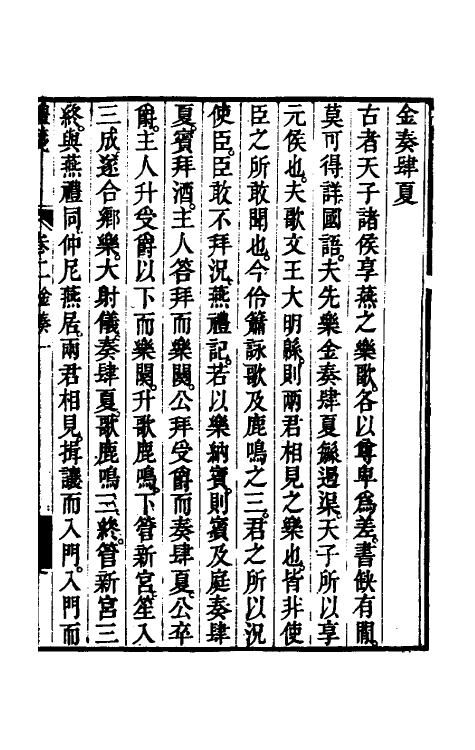 金奏肆夏
古者天子諸侯享燕之樂歌各以尊卑爲差書缺有閒
莫可得詳國語夫先樂金奏肆夏繇遏渠天子所以享
元侯也夫歌文王大明緜則兩君相見之樂也皆非使
臣之所敢聞也今伶簫詠歌及鹿鳴之三君之所以況
使臣臣敢不拜況燕禮記若以樂納賓則賓及庭奏肆
夏賓拜酒主人答拜而樂闋公拜受爵而奏肆夏公卒
爵主人升受爵以下而樂闋升歌鹿鳴下管新宮笙入
三成遂合鄉樂大射儀奏肆夏歌鹿鳴三終管新宮三
終與燕禮同仲尼燕居兩君相見揖讓而入門入門而
卷二金奏一